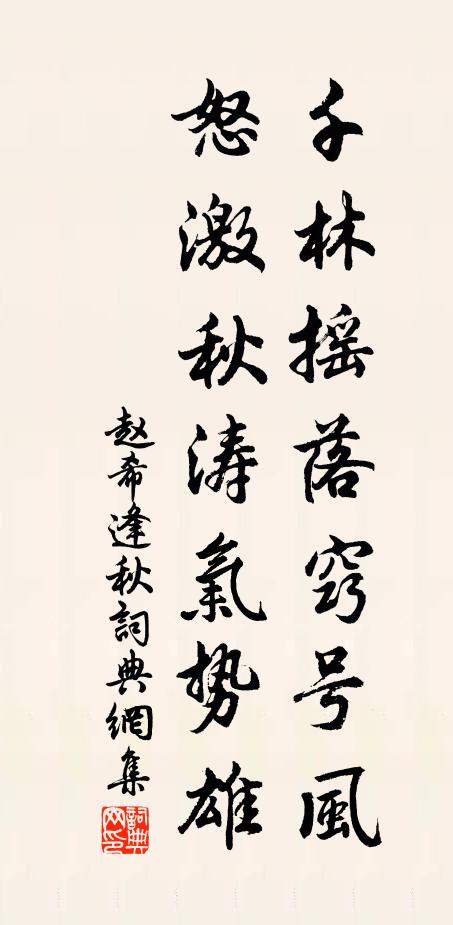 千林摇落窍号風
怒激秋涛氣势雄
赵希逢秋詞典網集
詞典网印